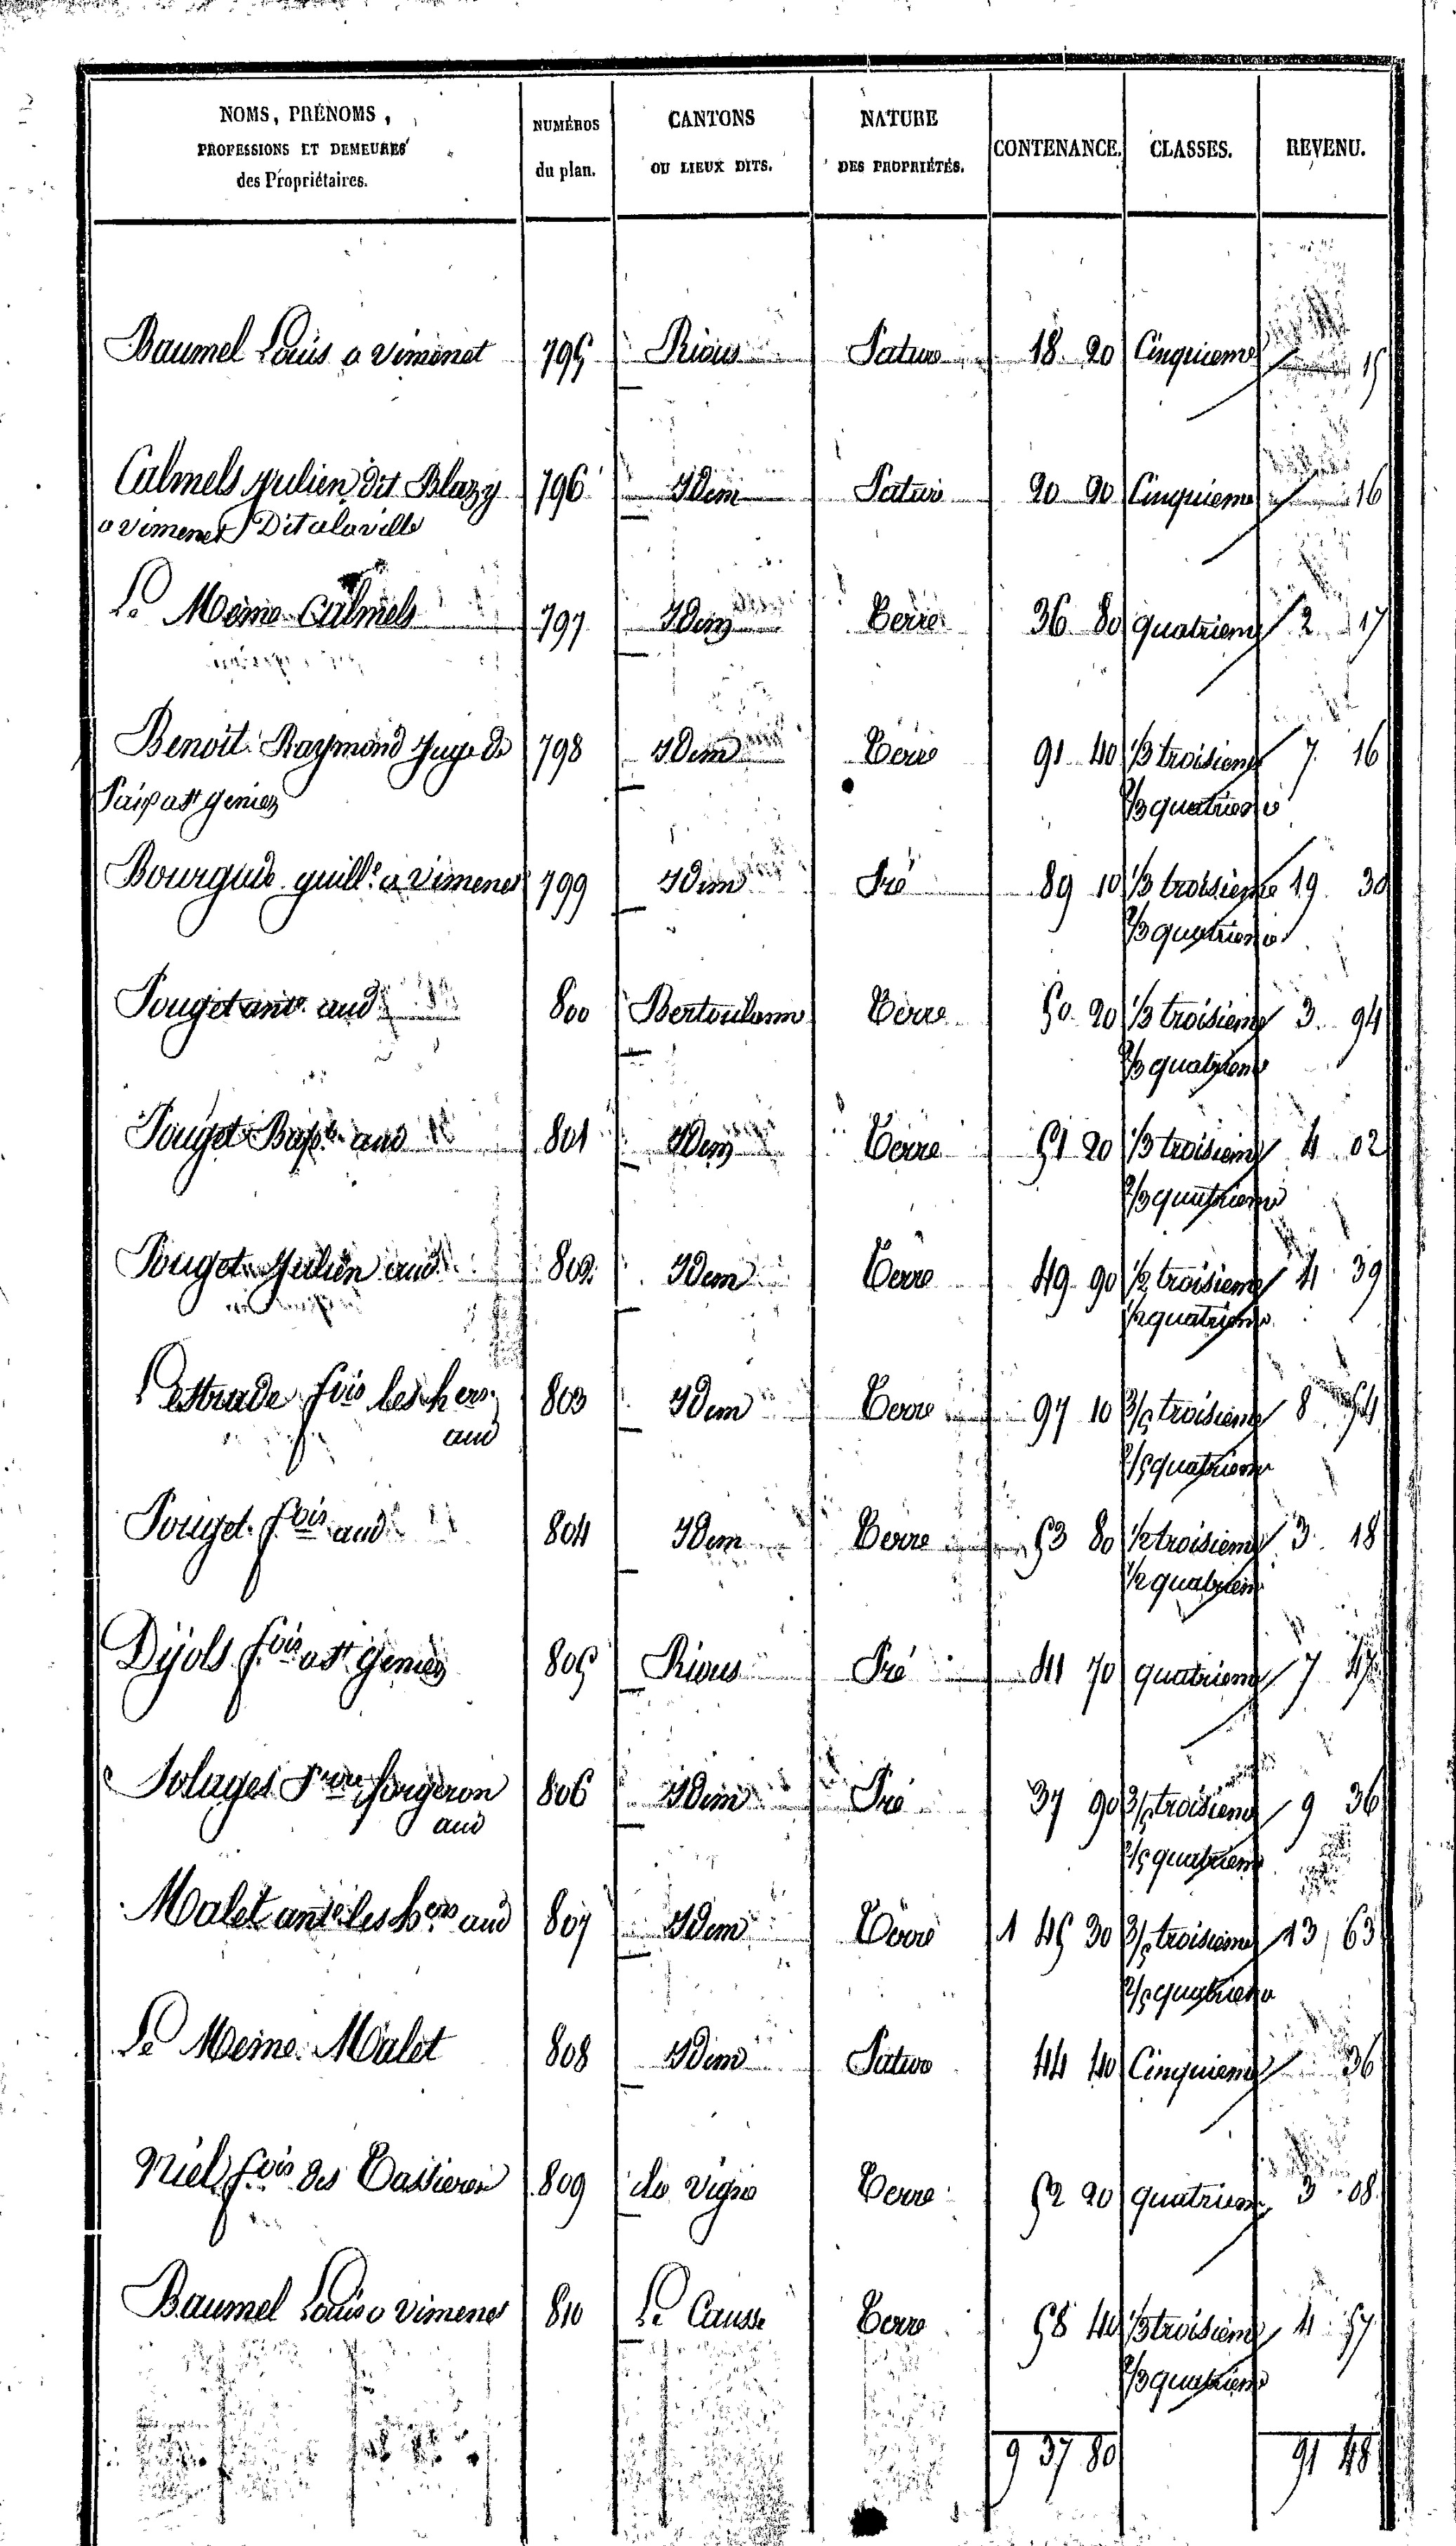 NOMS, PRÉNOMS, PROFESSIONS ET DEMEURES des Propriétaires. NUMÉROS du plan. CANTONS OU LIEUX DITS. NATURE DES PROPRIÉTÉS. CONTENANCE. CLASSES. REVENU.
Baumel Louis a Vimenet 795 Rious Pature 18 20 Cinquieme 15
Calmels Julien dit Blazy 796 Idem Pature 20 20 Cinquieme 16
a Vimenet
Le Meme Calmels 797 Idem Terre 36 80 quatrieme 2 17
Benoit Raymond Juge de 798 Idem Terre 91 40 1/3 troisieme 7 16
Paix a St Geniez 2/3 quatrieme
Bourgade guill.e a Vimenet 799 Idem Pré 89 10 1/3 troisieme 19 30
2/3 quatrieme
Pouget ant.e aud 800 Terre 50 20 1/3 troisieme 3 94
2/3 quatrieme
Pouget Bap.te aud 801 Idem Terre 51 20 1/3 troisieme 4 02
2/3 quatrieme
Pouget Julien aud 802 Idem Terre 49 90 1/2 troisieme 4 39
1/2 quatrieme
Lestrade fois les hers 803 Idem Terre 97 10 3/5 troisieme 8 54
aud 2/5 quatrieme
Pouget fois aud 804 Idem Terre 53 80 1/2 troisieme 3 18
1/2 quatrieme
Dijols fois a St Geniez 805 Rious Pré 41 70 quatrieme 7 47
Solages Pierre forgeron 806 Idem Pré 37 90 3/5 troisieme 9 36
aud 2/5 quatrieme
Malet ant.e les hers aud 807 Idem Terre 1 45 30 3/5 troisieme 13 63
2/5 quatrieme
Le Meme Malet 808 Idem Pature 44 40 Cinquieme 36
Niel fois des 809 Vigne Terre 52 20 quatrieme 3 08
Baumel Louis a Vimenet 810 Le Causse Terre 58 40 1/3 troisieme 4 57
2/3 quatrieme
9 37 80 91 48